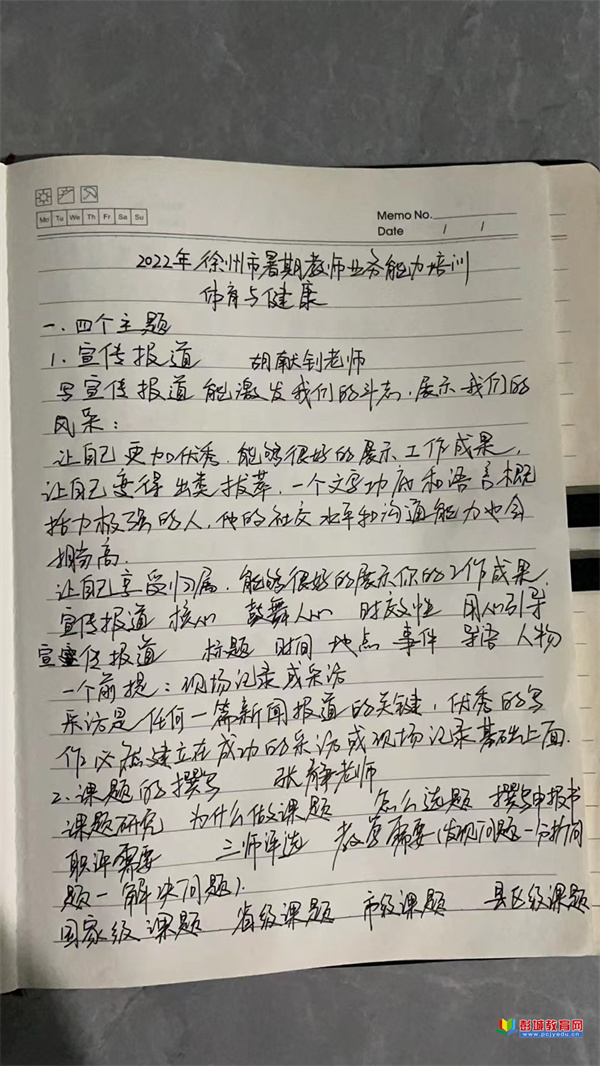 Mo Tu We Th Fr Sa Su
Memo No.
Date / /
2022年徐州市暑期教师业务能力培训
体育与健康
一.四个主题
1.宣传报道 胡献钊老师
写宣传报道能激发我们的斗志,展示我们的
风采:
让自己更加优秀.能够很好的展示工作成果,
让自己变得出类拔萃,一个文字功底和语言概
括力极强的人,他的社交水平和沟通能力也会
提高.
让自己享受归属.能够很好的展示你的工作成果.
宣传报道 核心 鼓舞人心 时效性 用心引导
宣传报道 标题 时间 地点 事件 导语 人物
一个前提:现场记录或采访
采访是任何一篇新闻报道的关键,优秀的写
作必然建立在成功的采访或现场记录基础上面.
2.课题的撰写 张静老师
课题研究 为什么做课题 怎么选题 撰写申报书
职评需要 三师评选 教学需要(发现问题—分析问
题—解决问题).
国家级课题 省级课题 市级课题 县区级课题
彭城教育网
www.pcjyedu.cn